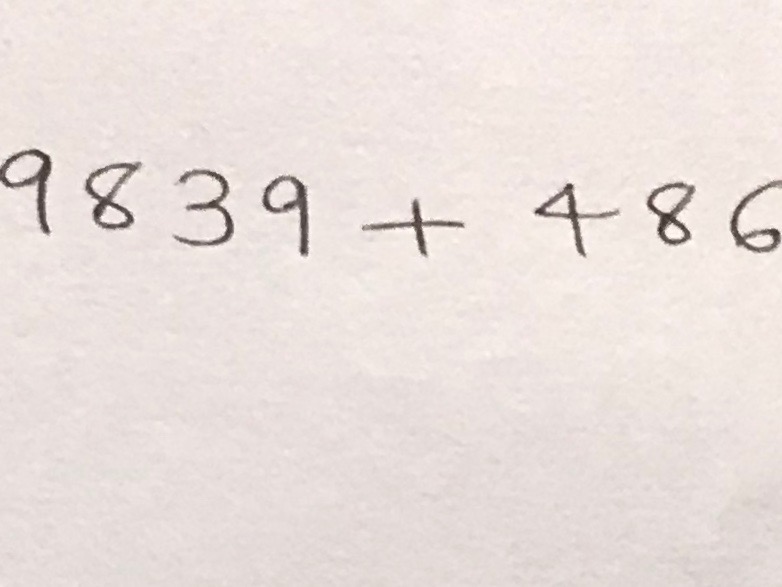 9839 + 486